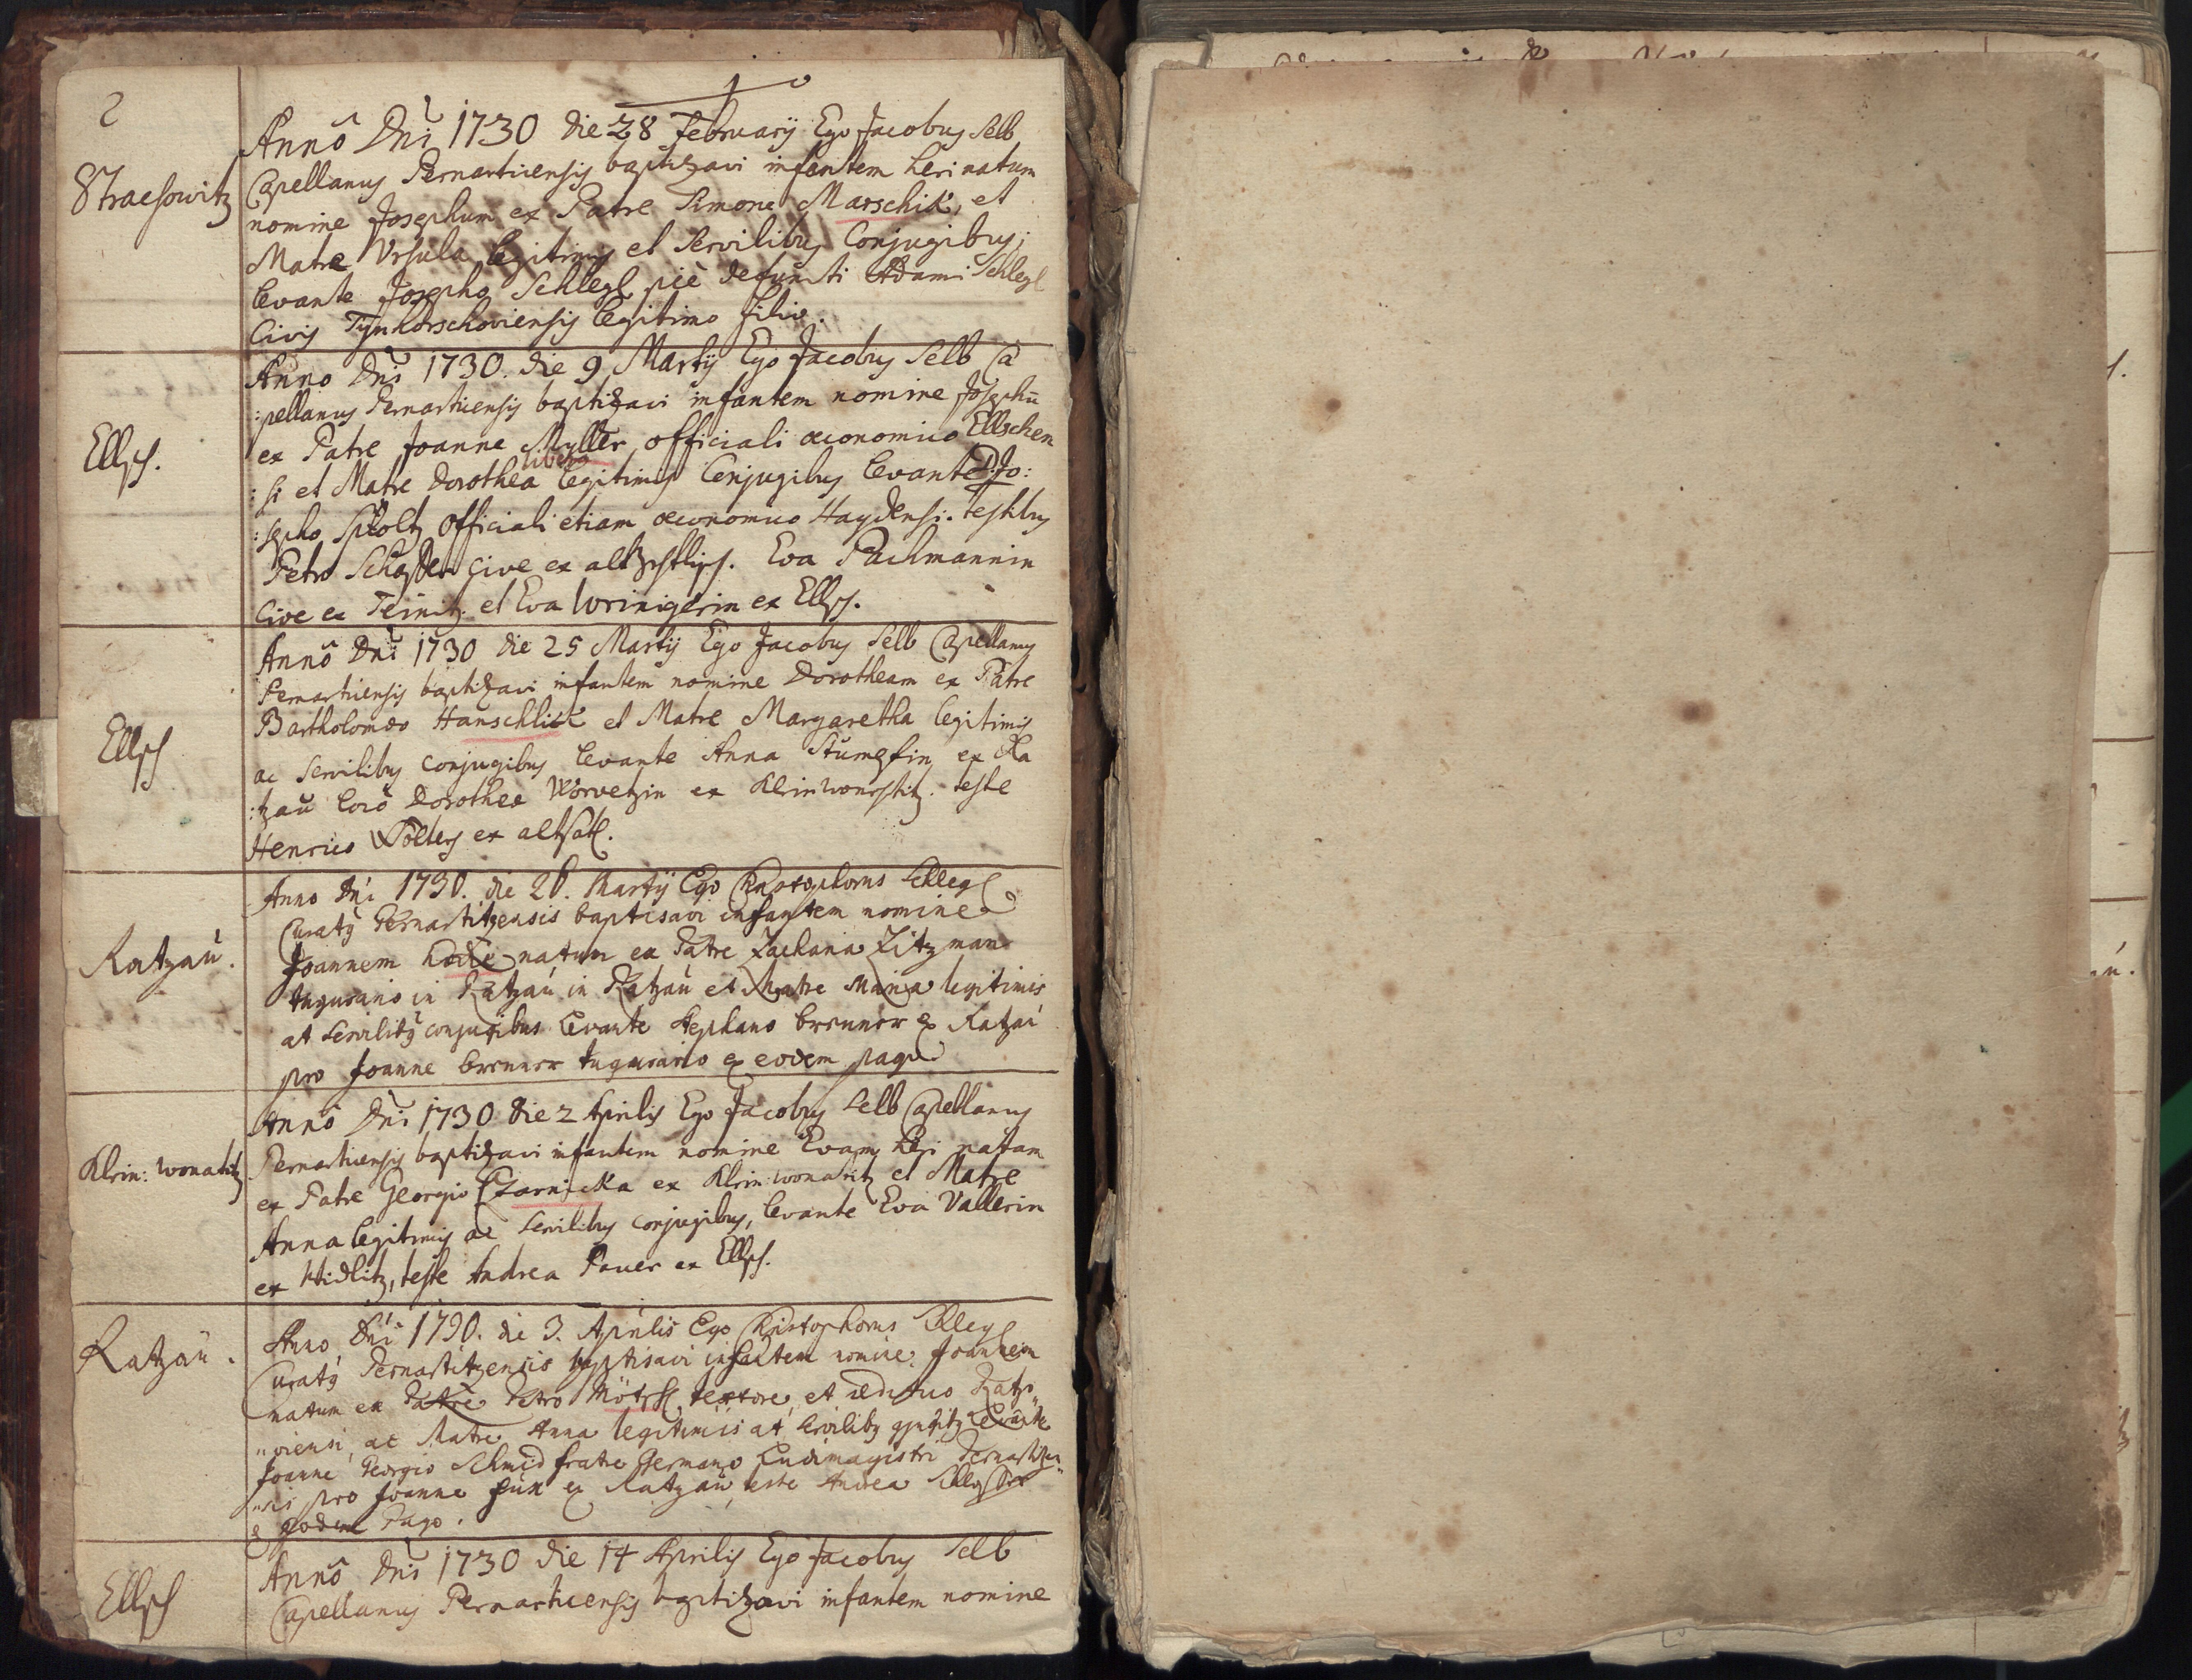 2
Straesowitz
Annô Dni 1730 die 28 Februarij Ego Jacobus Selb
Capellanus Pernarticensis baptizavi infantem heri natum
nomine Josephum ex Patre Simone Marschik, et
Matre Ursula legitimis et Servilibus Conjugibus;
levante Josepho Schlegl pie defuncti Adami Schlegl
Civis Tynhorschoviensis legitimo filio.
Ellsch.
Anno Dni 1730. die 9 Martij Ego Jacobus Selb Ca
:pellanus Pernarticensis baptizavi infantem nomine Josephū
ex Patre Joanne Myller officiali oeconomico Ellschen
libera
:si et Matre Dorothea legitimis Conjugibus levante D: Jo:
:sepho officiali etiam oeconomico Haydensi. testibus
Petro cive ex Eva Pachmannin
Cive ex Teinitz et Eva ex Ellsch.
Ellsch
Annô Dni 1730 die 25 Martij Ego Jacobus Selb Capellanus
Pernarticensis baptizavi infantem nomine Dorotheam ex Patre
Bartholomaeo Hanschlick et Matre Margaretha legitimis
ac Servilibus conjugibus levante Anna ex Ra
:tzau loco Dorothea ex Klein teste
Henrico ex altsatl.
Ratzaú.
Anno Dni 1730. die 26. Martij Ego Christophorus Schlegl
Curatus Pernartitzensis baptisavi infantem nomine
Joannem hodie natum ex Patre Zacharia Zitzman
tugurario in Ratzaú in Ratzaú et Matre Maria legitimis
at servilibus conjugibus levante Stephano brenner ex Ratzaú
pro Joanne brenner tugurario ex eodem pago
Klein: wonatitz
Annô Dni 1730 die 2 Aprilis Ego Jacobus Selb Capellanus
Pernarticensis baptizavi infantem nomine Evam heri natam
ex Patre Georgio Czarnicka ex Klein: wonatitz et Matre
Anna legitimis ac servilibus conjugibus, levante Eva Vallerin
ex Widlitz, teste Andrea Pauer ex Ellsch.
Ratzaú.
Anno Dni 1730. die 3. Aprilis Ego Christophorus Schlegl
Curatus Pernartitzensis baptisavi infantem nomine Joannem
natum ex Patre Petro textore, et aedituo Ratza„
„viensi, ac Matre Anna legitimis at servilibus levante
Joanne Georgio Schmid fratre Germano Ludimagistri Pernartitzen„
„sis pro Joanne ex Ratzaú, teste Andrea
ex eodem Pago.
Ellsch
Annô Dni 1730 die 14 Aprilis Ego Jacobus Selb
Capellanus Pernarticensis baptizavi infantem nomine